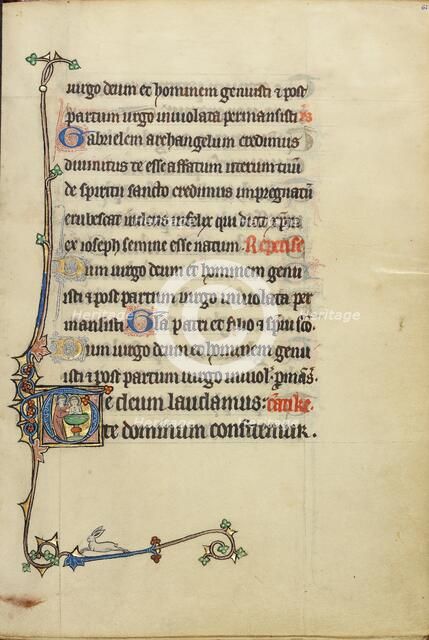 uirgo deum et hominem genuisti et post
partum uirgo inuiolata permansisti
Gabrielem archangelum credimus
diuinitus te esse affatum uterum tuũ
de spiritu sancto credimus impregnatũ
erubescat iudeus infelix qui dicit xp̃m
ex ioseph semine esse natum. Repetise
Dum uirgo deum et hominem genu
isti et post partum uirgo inuiolata per
mansisti Gl̃a patri et filio et sp̃ui sc̃o.
Dum uirgo deum et hominem genu
isti et post partum uirgo inuiol' ꝑmãs'.
Te deum laudamus: cãtike.
te dominum confitemur.
Heritage
Heritage
Heritage
Heritage